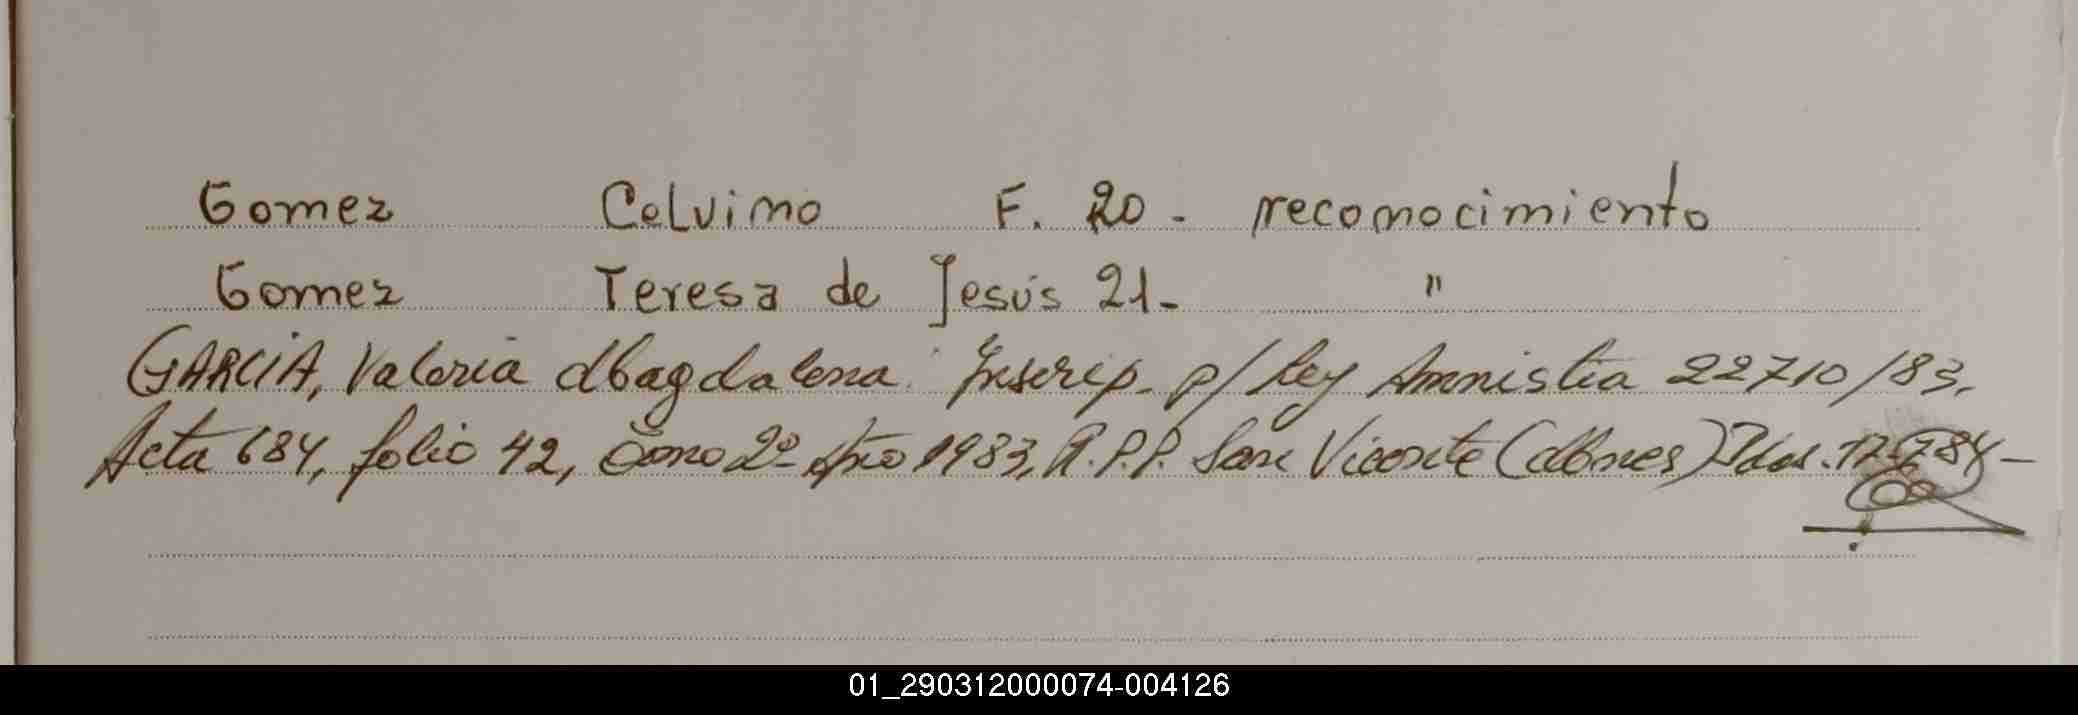 Gomez Celvino F. 20 - reconocimiento
Gomez Teresa de Jesús 21- "
GARCIA, Valeria Magdalena. Inscrip. p/ Ley Amnistia 22710/83.
Acta 684, folio 42, Tomo 2º Año 1983, R.P.P. San Vicente (Mnes)
01_290312000074-004126